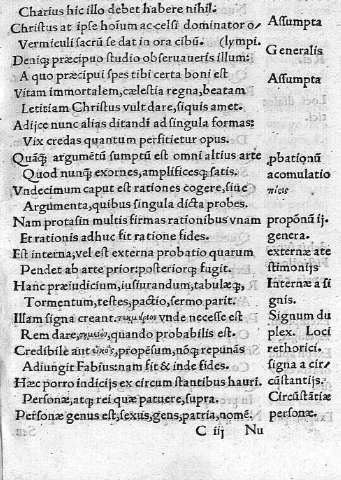 Charius hic illo debet habere nihil.
Christus at ipse hoĩum ac cęlsi dominator o/ Assumpta
Vermiculi sacrũ se dat in ora cibũ. (lympi.
Deniq; præcipuo studio obseruaueris illum: Generalis
A quo præcipui spes tibi certa boni est Assumpta
Vitam immortalem, cælestia regna, beatam
Letitiam Christus vult dare, siquis amet.
Adijce nunc alias ditandi ad singula formas:
Vix credas quantum perfitietur opus.
Quãq̃ argumẽtũ sumptũ est omni altius arte ꝓbationũ
Quod nunq̃ exornes, amplificesq; satis. acomulatio
Vndecimum caput est rationes cogere, siue nicis
Argumenta, quibus singula dicta probes.
Nam protasin multis firmas rationibus vnam propõnũ ij.
Et rationis adhuc fit ratione fides. genera.
Est interna, vel est externa probatio quarum externæ ate
Pendet ab arte prior: posteriorq; fugit. stimonijs
Hanc præiudicium, iusiurandum, tabulæq;, Internæ a si
Tormentum, testes, pactio, sermo parit. gnis.
Illam signa creant. τεκμήριον vnde necesse est Signum du
Rem dare, σημεῖον, quando probabilis est. plex. Loci
Credibile aut εἰκός, propẽsum, nõq; repunãs rethorici.
Adiungit Fabius: nam fit & inde fides. signa a cir/
Hæc porro indicijs ex circum stantibus hauri. cũstantijs.
Personæ, atq; rei quæ patuere, supra. Circũstãtiæ
Personæ genus est, sexus, gens, patria, nomẽ. personæ.
C iij Nu